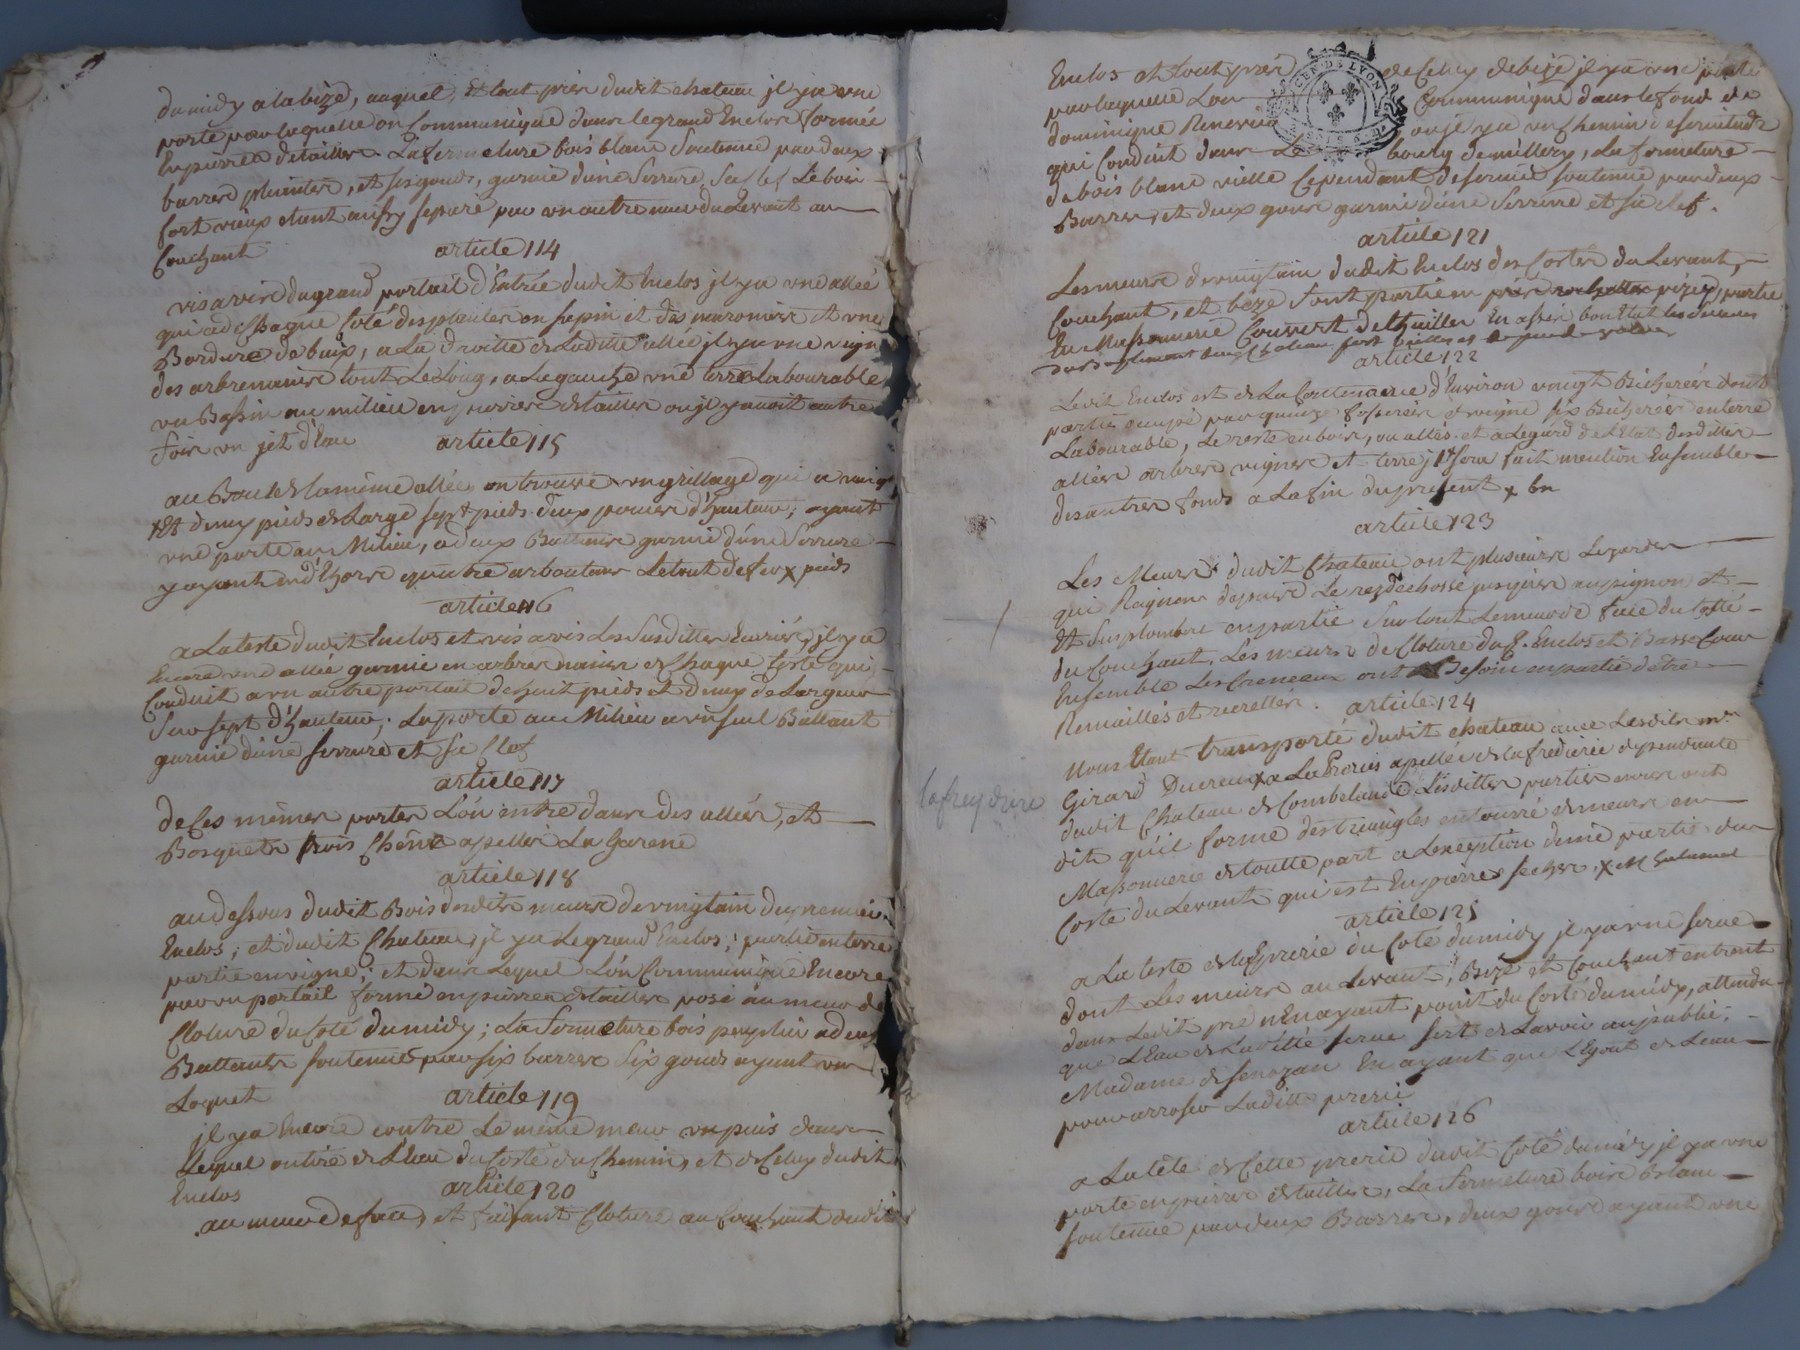 du midy a la bize, auquel, et tout près dudit chateau jl y a une
porte par laquelle on Communique dans le grand Enclos formée
En pierre de tailles La fermeture bois blanc Soutenue par deux
barres plientes, et six gonds, garnie d'une Serrure, Sa clef Le bois
fort vieux etant aussy separé par un autre mur du Levant au
Couchant
article 114
vis a vis du grand portail d'Entrée dudit Enclos jl y a une allée
qui a de Chaque Coté des plantes en sepin et des maroniers et une
Bordure de buix, a La droitte de Laditte allée jl y a une vigne
des arbres nains tout Le Long, a La gauche une terre Labourable
un Bassin au milieu en pierre de tailles ou jl y avoit autre
fois un jet d'Eau
article 115
au Bout de la même allée, on trouve un grillage qui a vingt
et demy pieds de Large sept pieds deux pouces d'hauteur; ayant
une porte au Milieu, a deux Battants garnie d'une Serrure
y ayant en d'hors quatre arboutans Le tout de fer x pieds
article 116
a La teste dudit Enclos et vis a vis Les Susdittes Ecuries, jl y a
Encore une allée garnie en arbres nains de Chaque Costé qui
Conduit a un autre portail de huit pieds et demy de Largeur
Sur sept d'hauteur; La porte au Milieu a un seul Battant
garnie d'une serrure et Sa Clef
article 117
de Ces mêmes portes L'on entre dans des allées, et
Bosquets bois Chêne apellés La Garene
article 118
au dessous dudit Bois desdits meurs de vingtain du premier
Enclos; et dudit Chateau, jl y a Le grand Enclos; partie en terre
partie en vigne; et dans Lequel L'on Communique Encore
par un portail formé en pierres de tailles posé au meur de
Cloture du Coté du midy; La fermeture bois peuplier a deux
Battants soutenue par six barres six gonds ayant un
Loquet
article 119
jl y a Encore contre Le même meur un puis dans
Lequel on tire de L'Eau du Costé du Chemin, et de Celuy dudit
Enclos
article 120
au meur de face, et faisant Cloture au Couchant dudit
Enclos et tout près de Celuy de bize jl y a une porte
par laquelle L'on Communique dans le fond de
dominique Renevier ou jl y a un Chemin de servitude
qui Conduit dans Le bourg de millery, La fermeture
de bois blanc vielle Cependant de service soutenue par deux
Barres, et deux gons garnie d'une Serrure et sa clef.
CEN. DE LYON
article 121
Les meurs de vingtain dudit Enclos des Costés du Levant,
Couchant, et bize sont partie en pizey, partie
En Massonnerie Couvert de thuilles En assez bon Etat
article 122
Ledit Enclos est de La Contenance d'Environ vingt Bicherées dont
partie occupé par quinze fosserées de vigne six Bicherées en terre
Labourable, Le reste en bois, ou allés et a Legard de L'Etat desdittes
allées arbres vignes et terre jl sera fait mention Ensemble
des autres fonds a La fin du présent
article 123
Les Meurs dudit Chateau ont plusieurs Lezardes
qui Raignent depuis Le rez de chossé jusques au pignon et
et Surplombe en partie Sur tout Le meur de face du Costé
du Couchant. Les meurs de Cloture du g. Enclos et Basse Cour
Ensemble Les Creneaux ont Besoin en partie d'etre
Remaillés et recrettés.
article 124
Nous Etant transporté dudit chateau avec Lesdits mrs
Girard Ducreux a La Prerie apellée de la frederie dependante
dudit Chateau de Combelande Lesditte parties nous ont
dit qu'il forme des triangles entouré de meurs en
Massonnerie de toutte part a L'exeption d'une partie du
Costé du Levant qui est En pierres seches
La freydiere
article 125
a La teste de La prerie du Coté du midy jl y a une serve
dont Les meurs au Levant, Bize et Couchant entrent
dans Ledit pré n'En ayant point du Costé du midy, attendu
que L'Eau de La ditte serve sert de Lavoir au publie;
Madame de senozan En ayant que L'Egout de L'eau
pour arroser Laditte prerie
article 126
a La tête de Cette prerie dudit Coté du midy jl y a une
porte en pierres de tailles, La fermeture bois Blanc
soutenue par deux Barres, deux gons ayant une